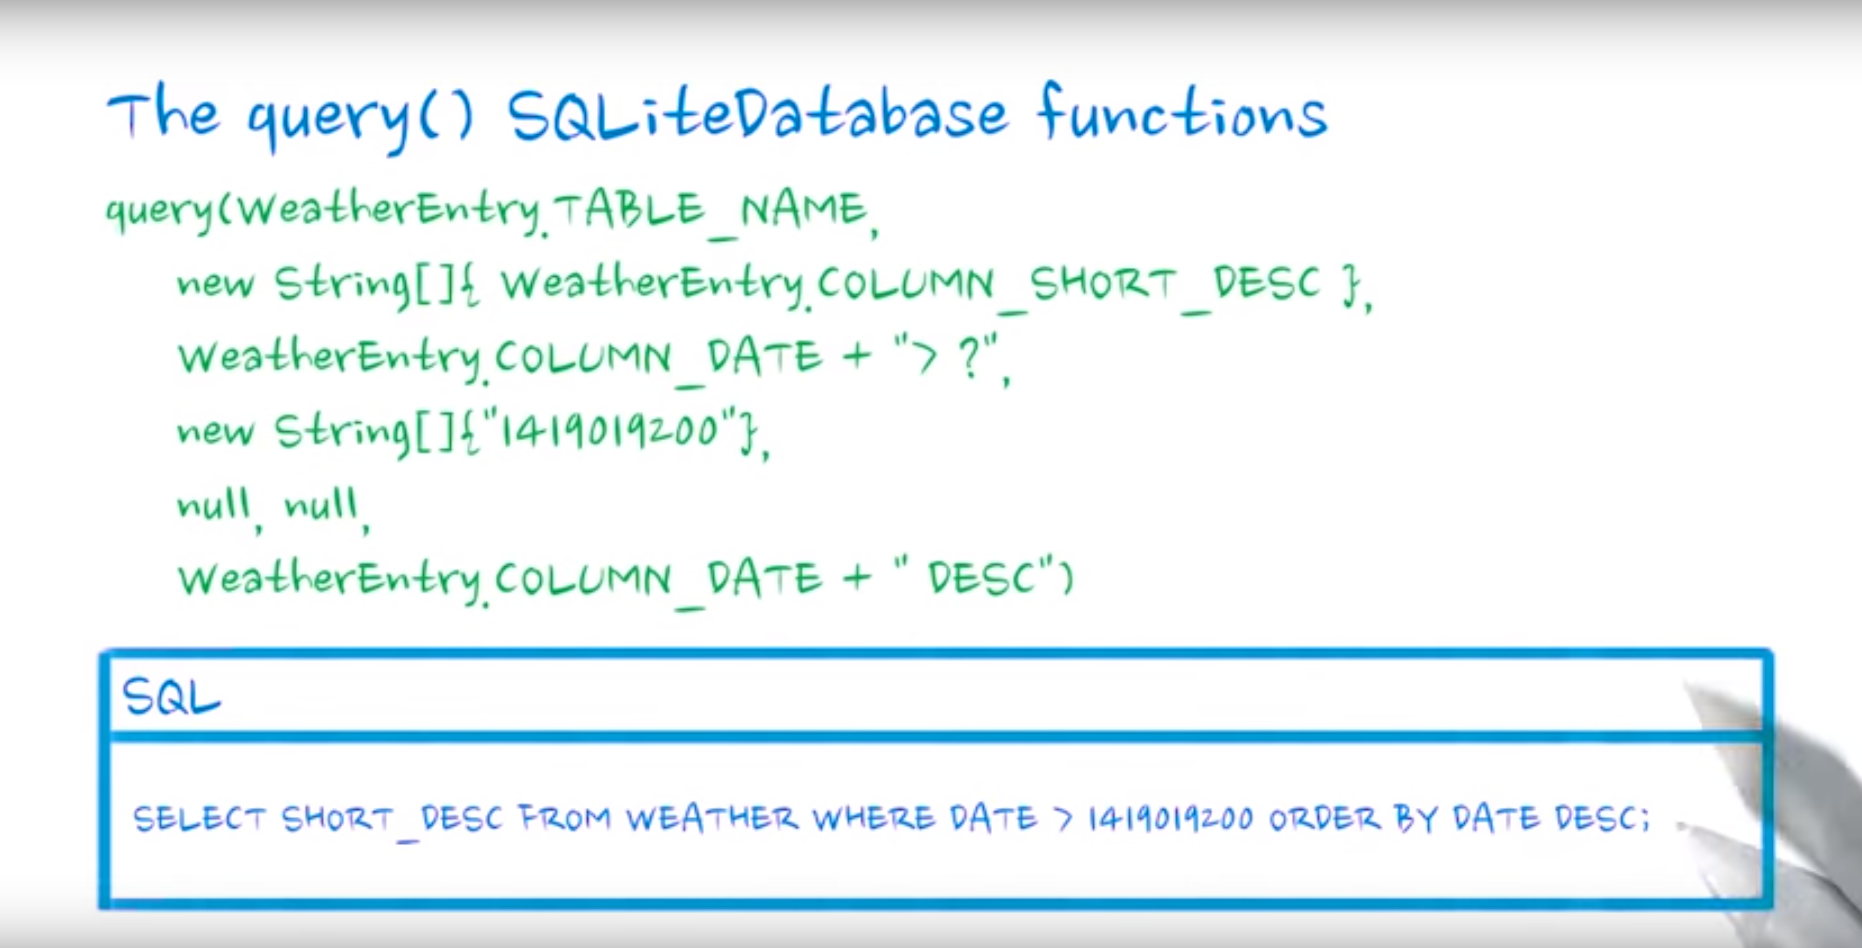 The query() SQLiteDatabase functions
query(WeatherEntry.TABLE_NAME,
new String[]{ WeatherEntry.COLUMN_SHORT_DESC },
WeatherEntry.COLUMN_DATE + "> ?",
new String[]{"1419019200"},
null, null,
WeatherEntry.COLUMN_DATE + " DESC")
SQL
SELECT SHORT_DESC FROM WEATHER WHERE DATE > 1419019200 ORDER BY DATE DESC;